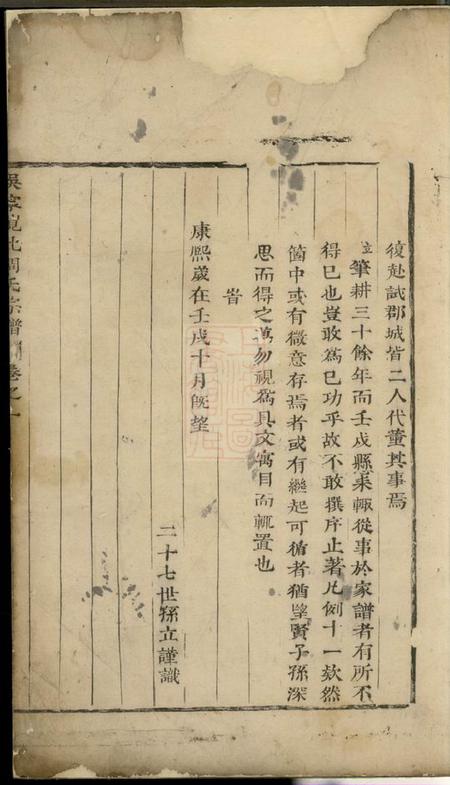 復赴試郡城皆二人代董其事焉
立筆耕三十餘年而壬戌縣乘輒從事於家譜者有所不
得已也豈敢為已功乎故不敢撰序止著凡例十一欵然
箇中或有微意存焉者或有繼起可循者猶望賢子孫深
思而得之萬勿視為具文寓目而輒置也
旹
康熙歲在壬戌十月旣望
二十七世孫立謹識
吳寧託北周氏宗譜 卷之一